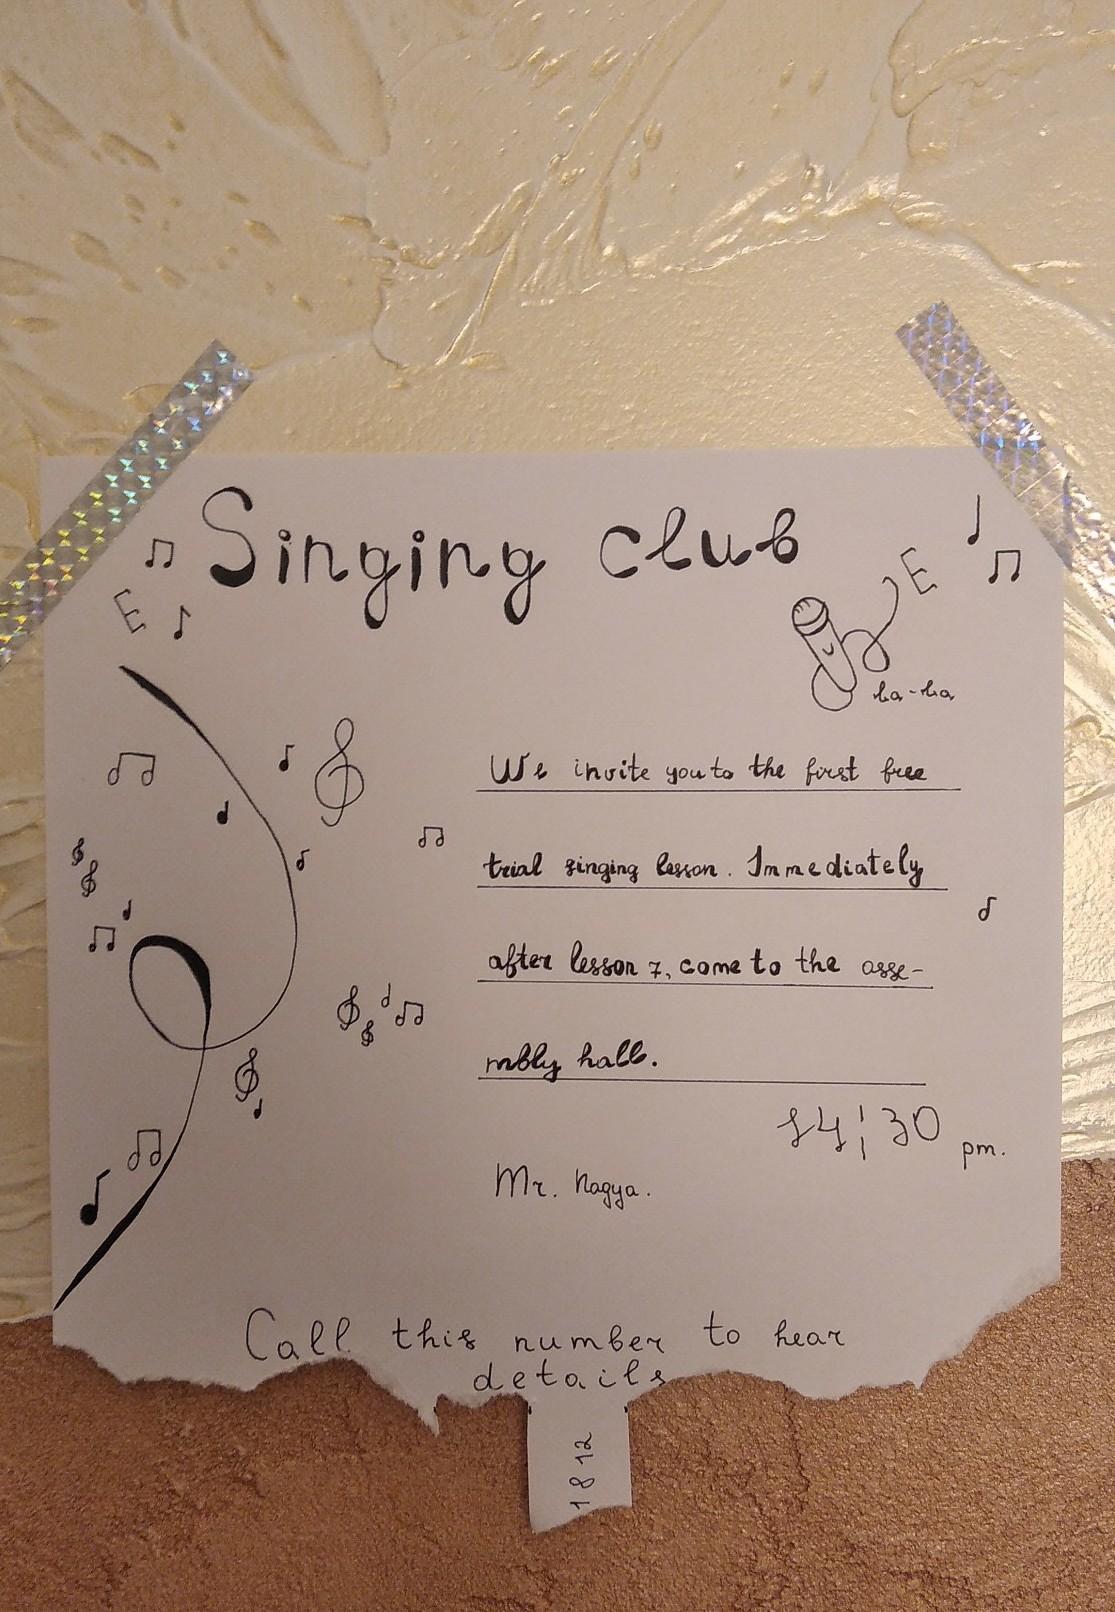 Singing club
E
E
la-la
We invite you to the first free
trial singing lesson. Immediately
after lesson 7, come to the asse-
mbly hall.
14:30 pm.
Mr. Nagya.
Call this number to hear
details
1812